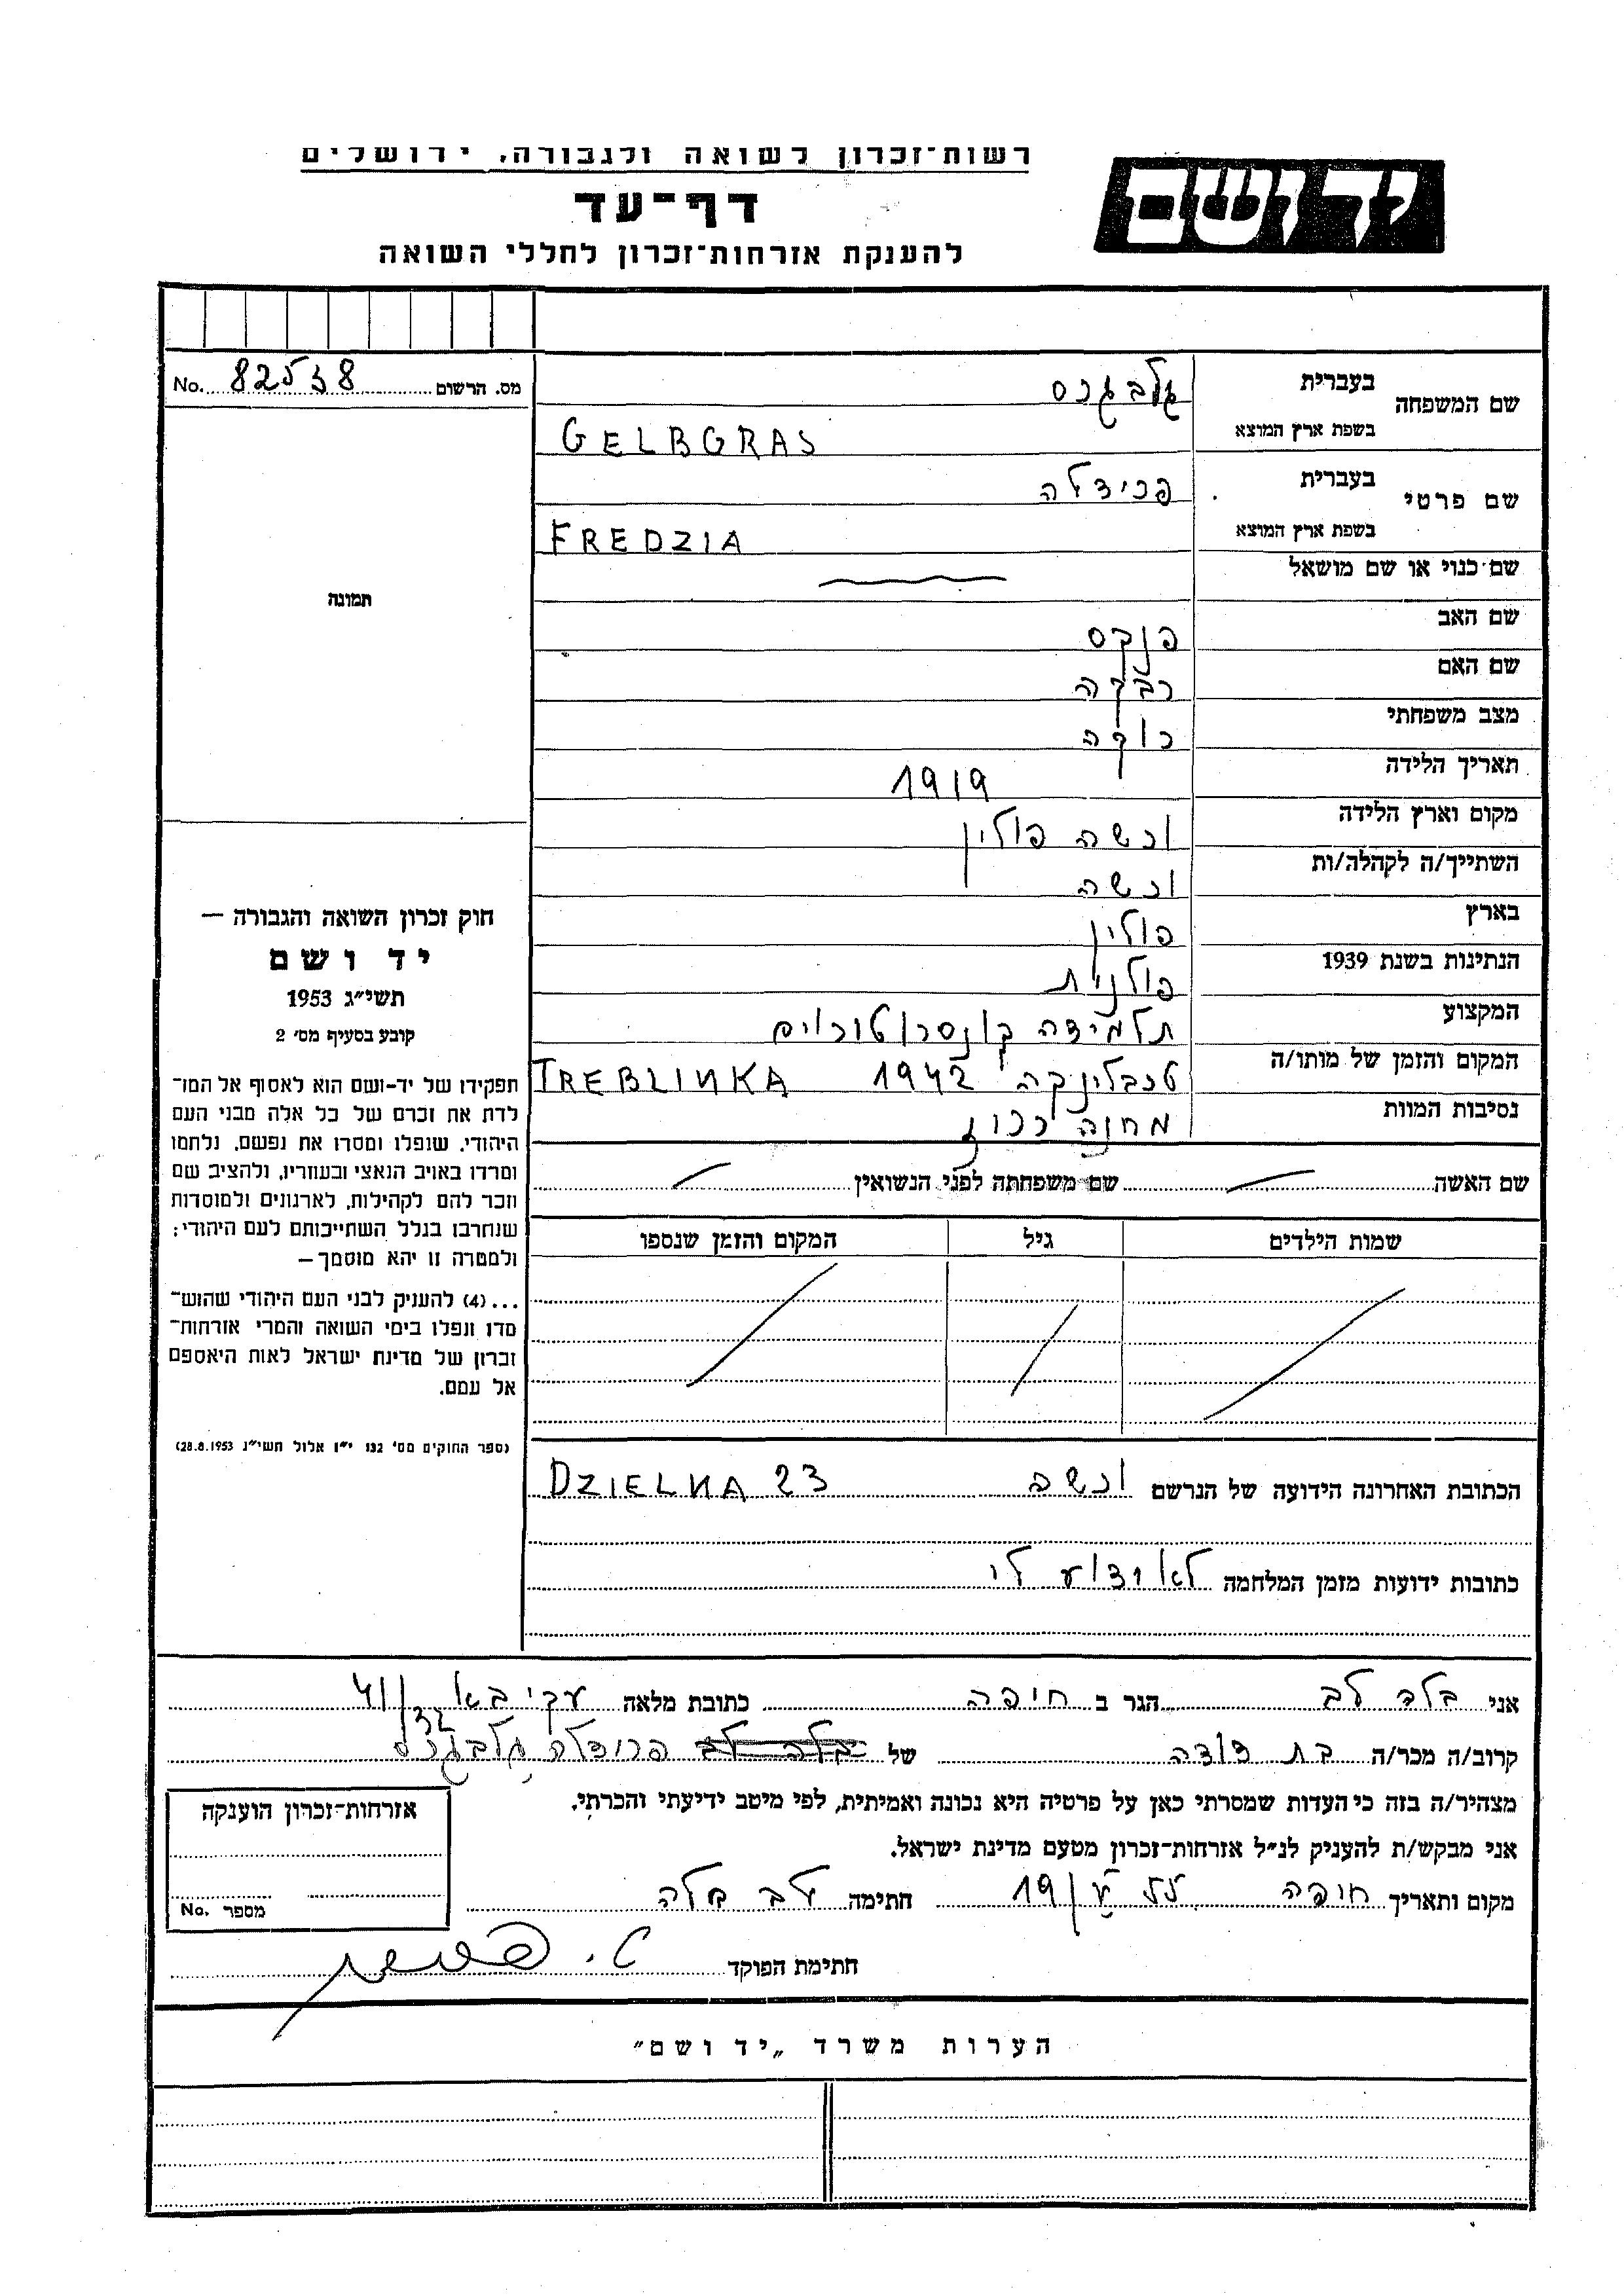 רשות־זכרון לשואה ולגבורה, ירושלים
דף־עד
להענקת אזרחות־זכרון לחללי השואה
יד ושם
מס. הרשום 82538 No.
שם המשפחה
בעברית גלבגרס
בשפת ארץ המוצא GELBGRAS
שם פרטי
בעברית פרידז'ה
בשפת ארץ המוצא FREDZIA
שם כנוי או שם מושאל
שם האב פנקס
שם האם רבקה
מצב משפחתי רוקה
תאריך הלידה 1919
מקום וארץ הלידה ורשה פולין
השתייך/ה לקהלה/ות ורשה
בארץ פולין
הנתינות בשנת 1939 פולנית
המקצוע תלמידה קונסרוטוריום
המקום והזמן של מותו/ה טרבלינקה 1942 TREBLINKA
נסיבות המוות מחנה רכוז
תמונה
חוק זכרון השואה והגבורה —
יד ושם
תשי״ג 1953
קובע בסעיף מס׳ 2
תפקידו של יד-ושם הוא לאסוף אל המו־
לדת את זכרם של כל אלה מבני העם
היהודי, שנפלו ומסרו את נפשם, נלחמו
ומרדו באויב הנאצי ובעוזריו, ולהציב שם
וזכר להם לקהילות, לארגונים ולמוסדות
שנחרבו בגלל השתייכותם לעם היהודי;
ולמטרה זו יהא מוסמך—
...(4) להעניק לבני העם היהודי שהוש־
מדו ונפלו בימי השואה והמרי אזרחות־
זכרון של מדינת ישראל לאות היאספם
אל עמם.
(ספר החוקים מס׳ 132 י״ז אלול תשי״ג 28.8.1953)
שם האשה שם משפחתה לפני הנשואין
שמות הילדים גיל המקום והזמן שנספו
הכתובת האחרונה הידועה של הנרשם ורשב DZIELNA 23
כתובות ידועות מזמן המלחמה לא ידוע לי
אני בלה לב הגר ב חיפה כתובת מלאה עקיבא 41/32
קרוב/ה מכר/ה בת דודה של פרידז'ה גלבגרס
מצהיר/ה בזה כי העדות שמסרתי כאן על פרטיה היא נכונה ואמיתית, לפי מיטב ידיעתי והכרתי.
אני מבקש/ת להעניק לנ״ל אזרחות־זכרון מטעם מדינת ישראל.
מקום ותאריך חיפה חתימה לב בלה
חתימת הפוקד
אזרחות־זכרון הוענקה
מספר No.
הערות משרד „יד ושם״